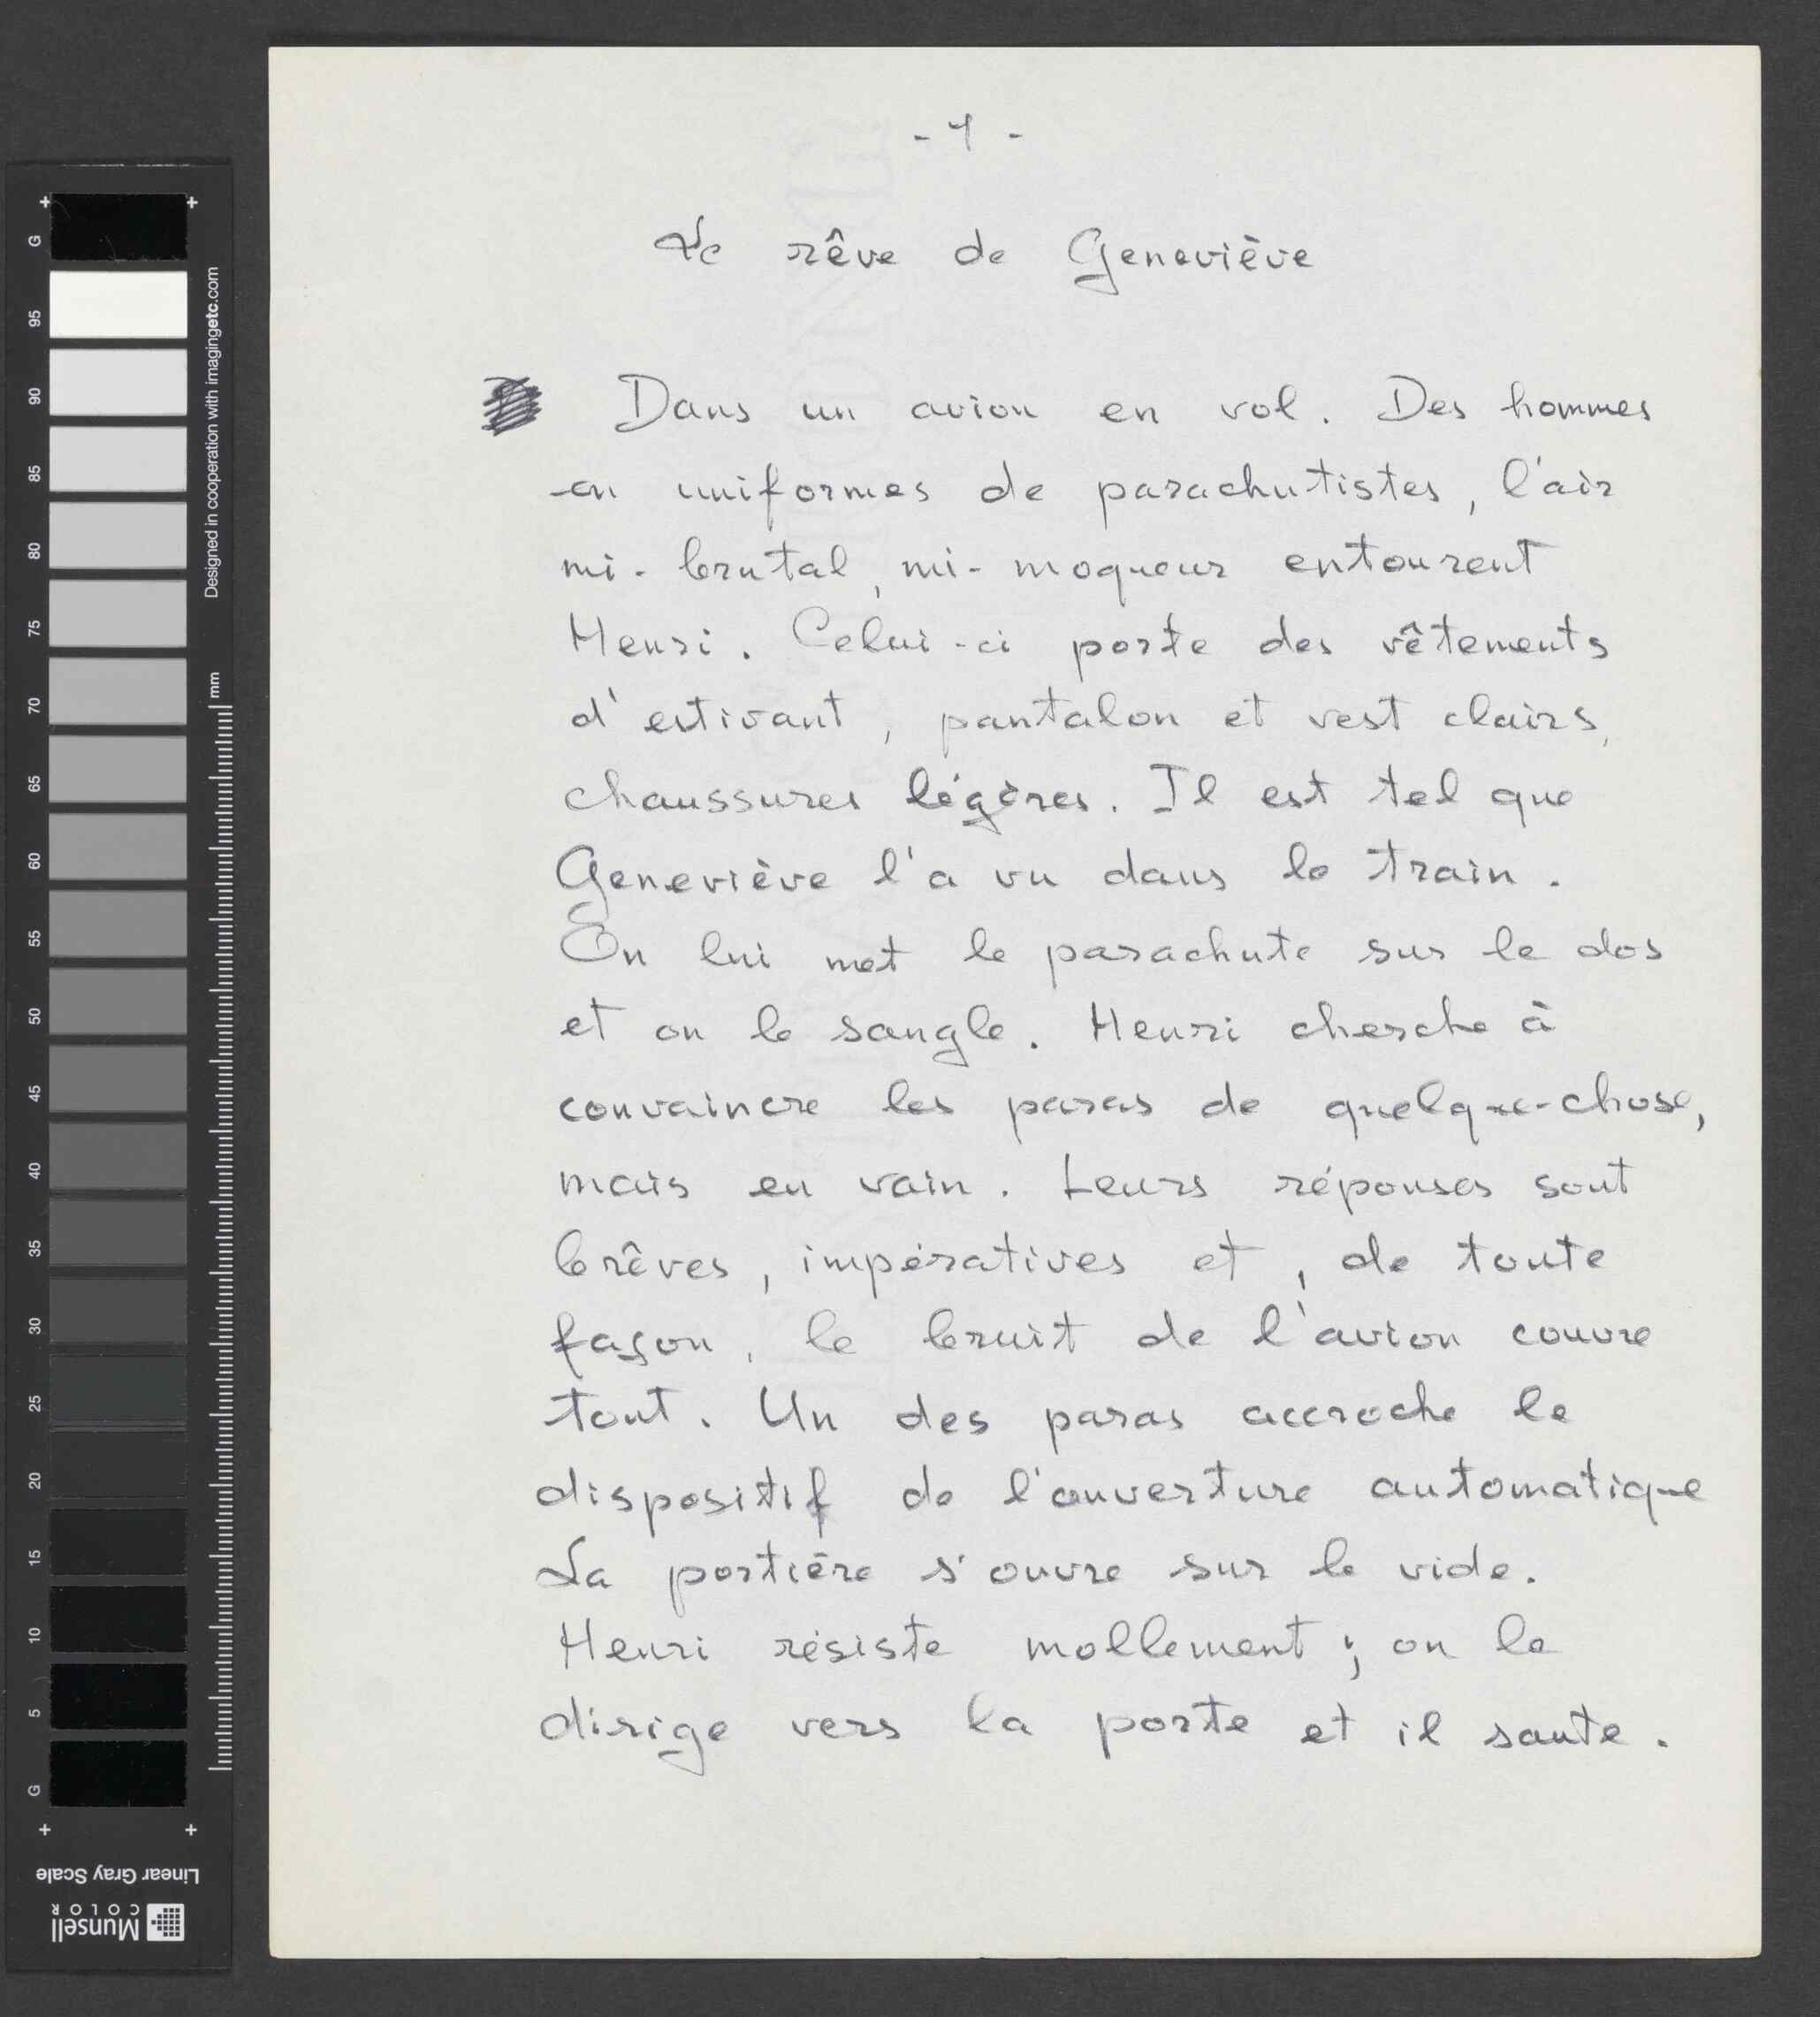 - 1 -
Le rêve de Geneviève
Dans un avion en vol. Des hommes
en uniformes de parachutistes, l'air
mi-brutal, mi-moqueur entourent
Henri. Celui-ci porte des vêtements
d'estivant, pantalon et vest clairs,
chaussures légères. Il est tel que
Geneviève l'a vu dans le train.
On lui met le parachute sur le dos
et on le sangle. Henri cherche à
convaincre les paras de quelque-chose,
mais en vain. Leurs réponses sont
brêves, impératives et, de toute
façon, le bruit de l'avion couvre
tout. Un des paras accroche le
dispositif de l'ouverture automatique
La portière s'ouvre sur le vide.
Henri résiste mollement ; on le
dirige vers la porte et il saute.
G
95
90
85
80
75
70
65
60
55
50
45
40
35
30
25
20
15
10
5
G
Designed in cooperation with imagingetc.com
mm
Linear Gray Scale
Munsell
COLOR